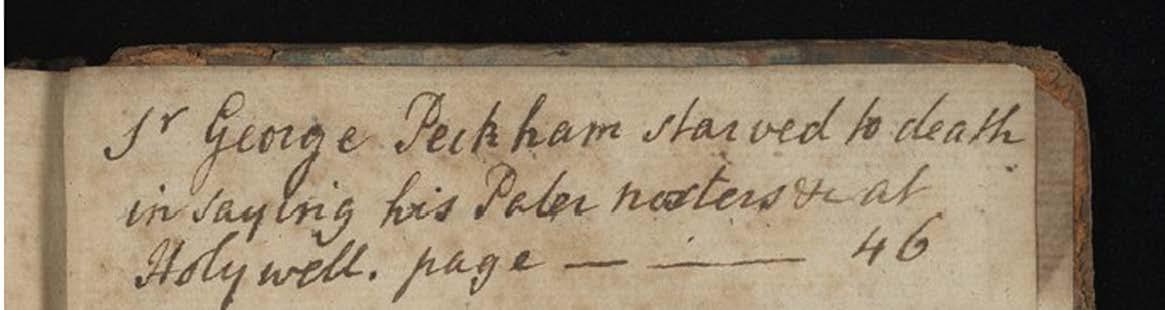 Sr George Peckham starved to death
in saying his Pater nosters &c at
Holywell. page — — 46